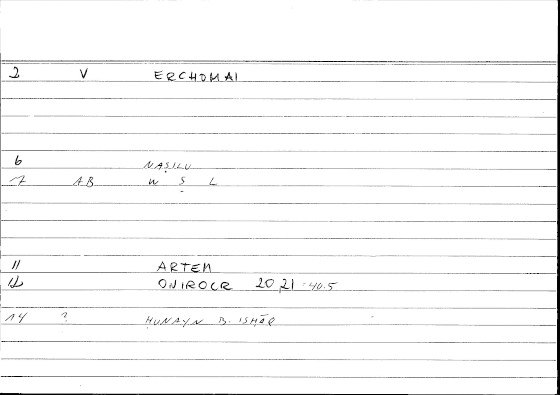 2 V ERCHOMAI
6 NAṢILU
7 AB W Ṣ L
11 ARTEM
12 ONIROCR 20,21 - 40.5
14 ? ḤUNAYN B. ISḤĀQ